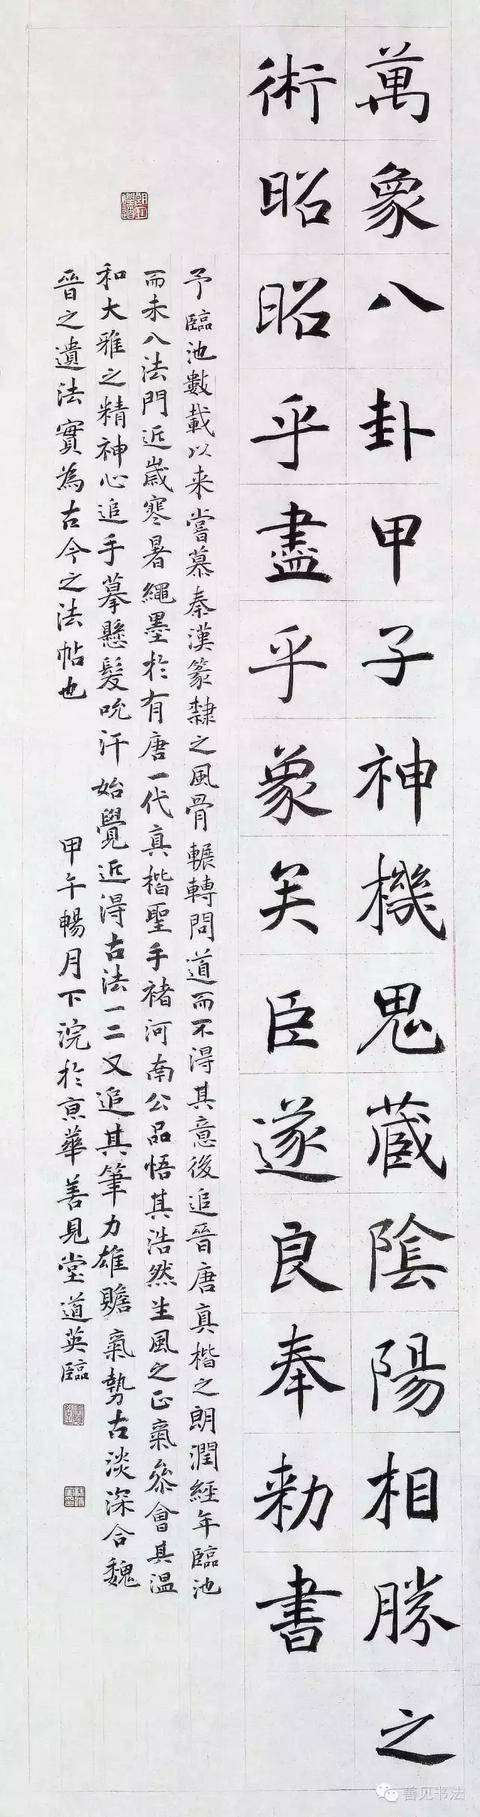 萬象八卦甲子神機鬼藏陰陽相勝之
術昭昭乎盡乎象矣臣遂良奉勅書
予臨池數載以来嘗慕秦漢篆隸之風骨輾轉問道而不得其意後追晉唐真楷之朗潤經年臨池
而未入法門近歲寒暑繩墨於有唐一代真楷聖手褚河南公品悟其浩然生風之正氣參會其溫
和大雅之精神心追手摹懸髮吮汗始覺近得古法一二又追其筆力雄贍氣勢古淡深合魏
晉之遺法實為古今之法帖也
甲午暢月下浣於京華善見堂道英臨
善见书法